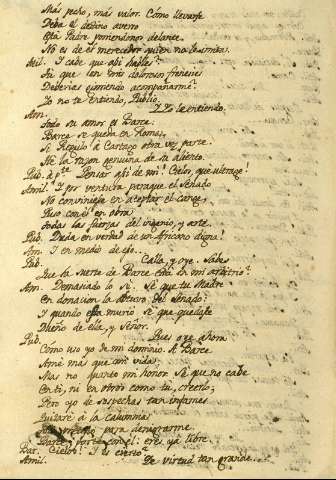 Más pecho, más valor. Cómo llevarse
Deba el destino averso
Esta Padre poniendonos delante.
No es de él merecedor quien no le imita.
Atil. I cabe que asi hables?
Tu que tan mis dolorosos
Deberías gimiendo acompañarme?
Yo no te entiendo, Publio.
Am. Y Yo le entiendo.
Todo su amor es Barce.
Barce se queda en Roma,
Si Regulo á Cartago otra vez parte.
He la razon genuina de su aliento.
Pub. á pte. Pensar asi de mi! Cielos, que ultrage!
Amil. I por ventura porque el Senado
No conviniese en aceptar el cange,
Puso con en obra
Todas las fuerzas del ingenio, y arte.
Pub. Duda en verdad de un Africano digna!
Am. I en medio de eso..
Pub. Calla, y oye. Sabes
Que la suerte de Barce está en mi arbitrio?
Am. Demasiado lo sé. Sé que tu Madre
En donacion la obtuvo del Senado:
I quando esta murió se que quedaste
Dueño de ella, y Señor.
Pub. Pues oye ahora
Cómo uso yo de mi dominio. A Barce
Amé más que mi vida;
Mas no quanto mi honor. Sé que no cabe
En ti, ni en otros como tu, creerlo;
Pero yo de sospechas tan infames
Quitaré á la calumnia
para denigrarme.
Barce, parte con él: eres ya libre.
Bar. Cielos! I es cierto?
Amil. De virtud tan grande..